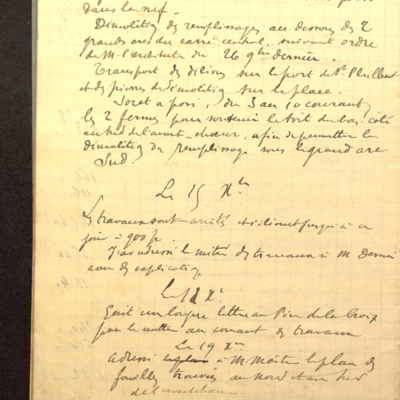 dans la nef.
Démolition des remplissages au dessous des 2
grands arcs du carré central, suivant ordre
de M. l'architecte du 26 9bre dernier.
Transport des débris sur le port de St Philbert
et des pierres de démolition sur la place.
Soret a posé, du 3 au 10 courant
les 2 fermes pour soutenir le toit du bas côté
au sud de l'avant-chœur, afin de permettre la
démolition du remplissage sous le grand arc
Sud.
Le 15 Xbre
Les travaux sont arrêtés s'élevant jusqu'à ce
jour à 900 fr.
J'ai adressé le métré des travaux à M.
avec des explications
Le 18 Xe
Écrit une longue lettre au Père de la Croix
pour le mettre au courant des travaux
Le 19 Xbre
Adressé à M. le plan des
fouilles trouvées au Nord et au Sud